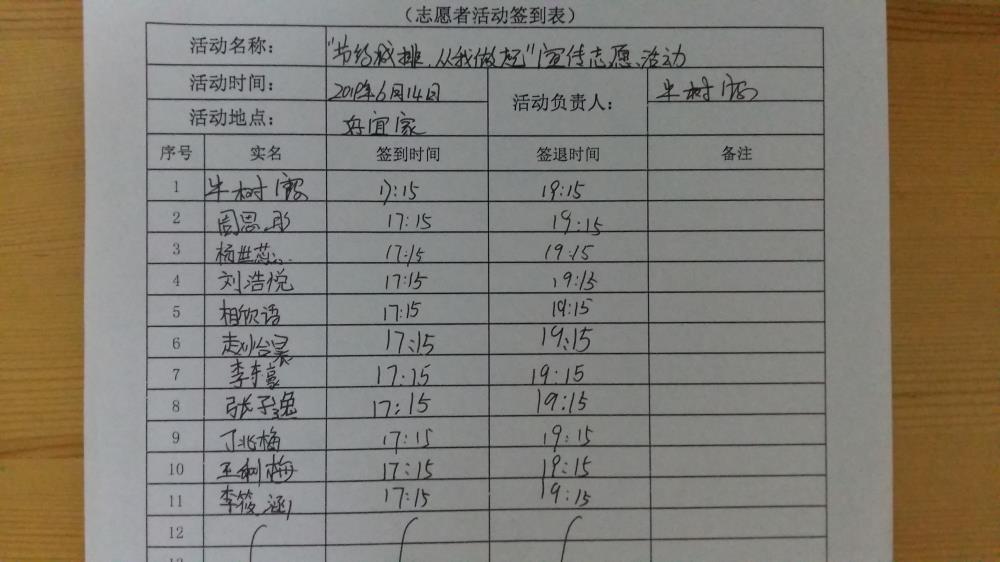 （志愿者活动签到表）
活动名称： "节约减排，从我做起"宣传志愿活动
活动时间： 2019年6月14日 活动负责人： 牛树
活动地点： 好宜家
序号 实名 签到时间 签退时间 备注
1 牛树 17:15 19:15
2 周思彤 17:15 19:15
3 杨世蕊 17:15 19:15
4 刘浩悦 17:15 19:15
5 相欣语 17:15 19:15
6 赵怡昊 17:15 19:15
7 李东豪 17:15 19:15
8 张子逸 17:15 19:15
9 丁兆梅 17:15 19:15
10 王利梅 17:15 19:15
11 李筱涵 17:15 19:15
12